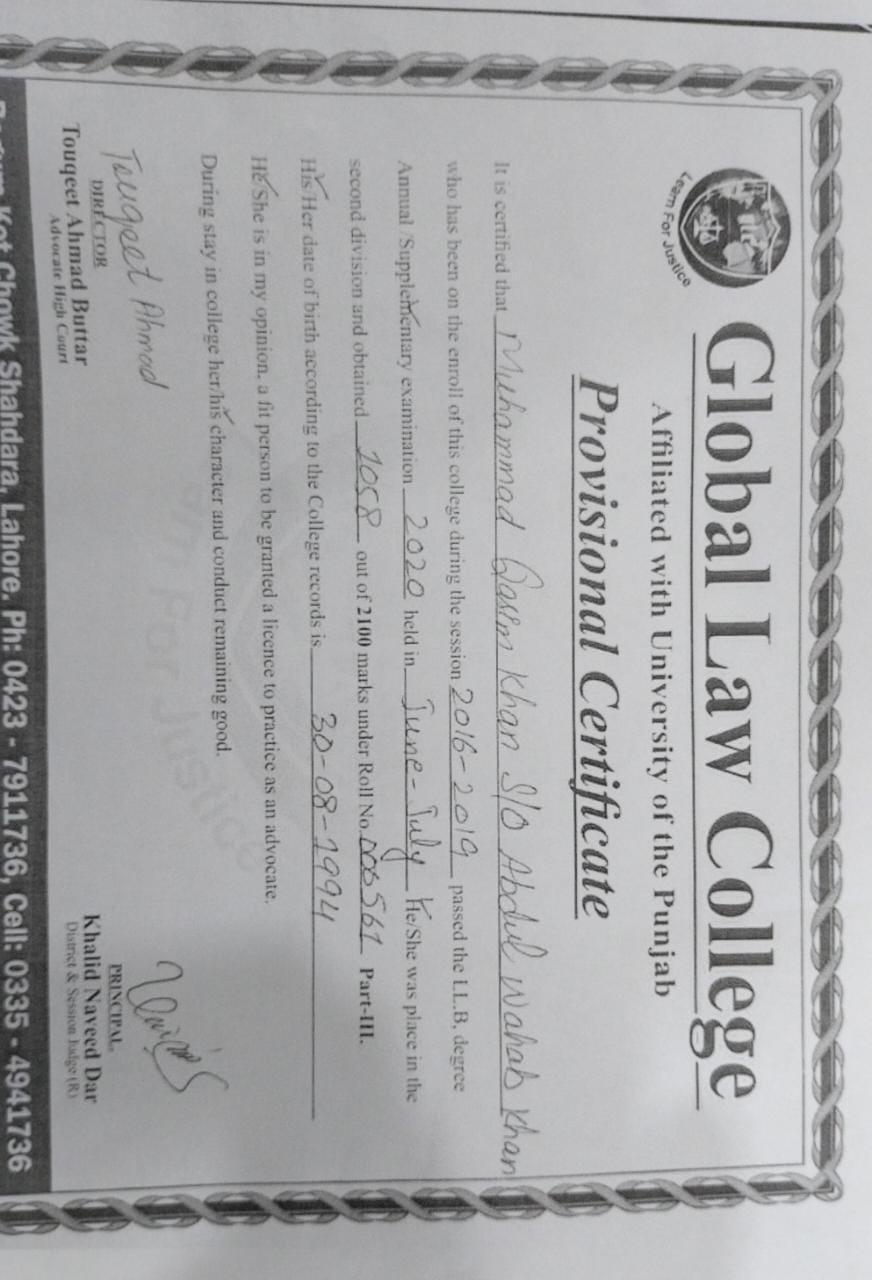 Global Law College
Learn For Justice
Affiliated with University of the Punjab
Provisional Certificate
It is certified that Muhammad Qasim Khan S/O Abdul Wahab Khan
who has been on the enroll of this college during the session 2016-2019 passed the LL.B, degree
Annual /Supplementary examination 2020 held in June-July He/She was place in the
second division and obtained 1058 out of 2100 marks under Roll No. 006561 Part-III.
His/Her date of birth according to the College records is 30-08-1994
He/She is in my opinion, a fit person to be granted a licence to practice as an advocate.
During stay in college her/his character and conduct remaining good.
Touqeet Ahmad
DIRECTOR
Touqeet Ahmad Buttar
Advocate High Court
PRINCIPAL
Khalid Naveed Dar
District & Session Judge (R)
Kot Chowk Shahdara, Lahore. Ph: 0423 - 7911736, Cell: 0335 - 4941736
For Justice